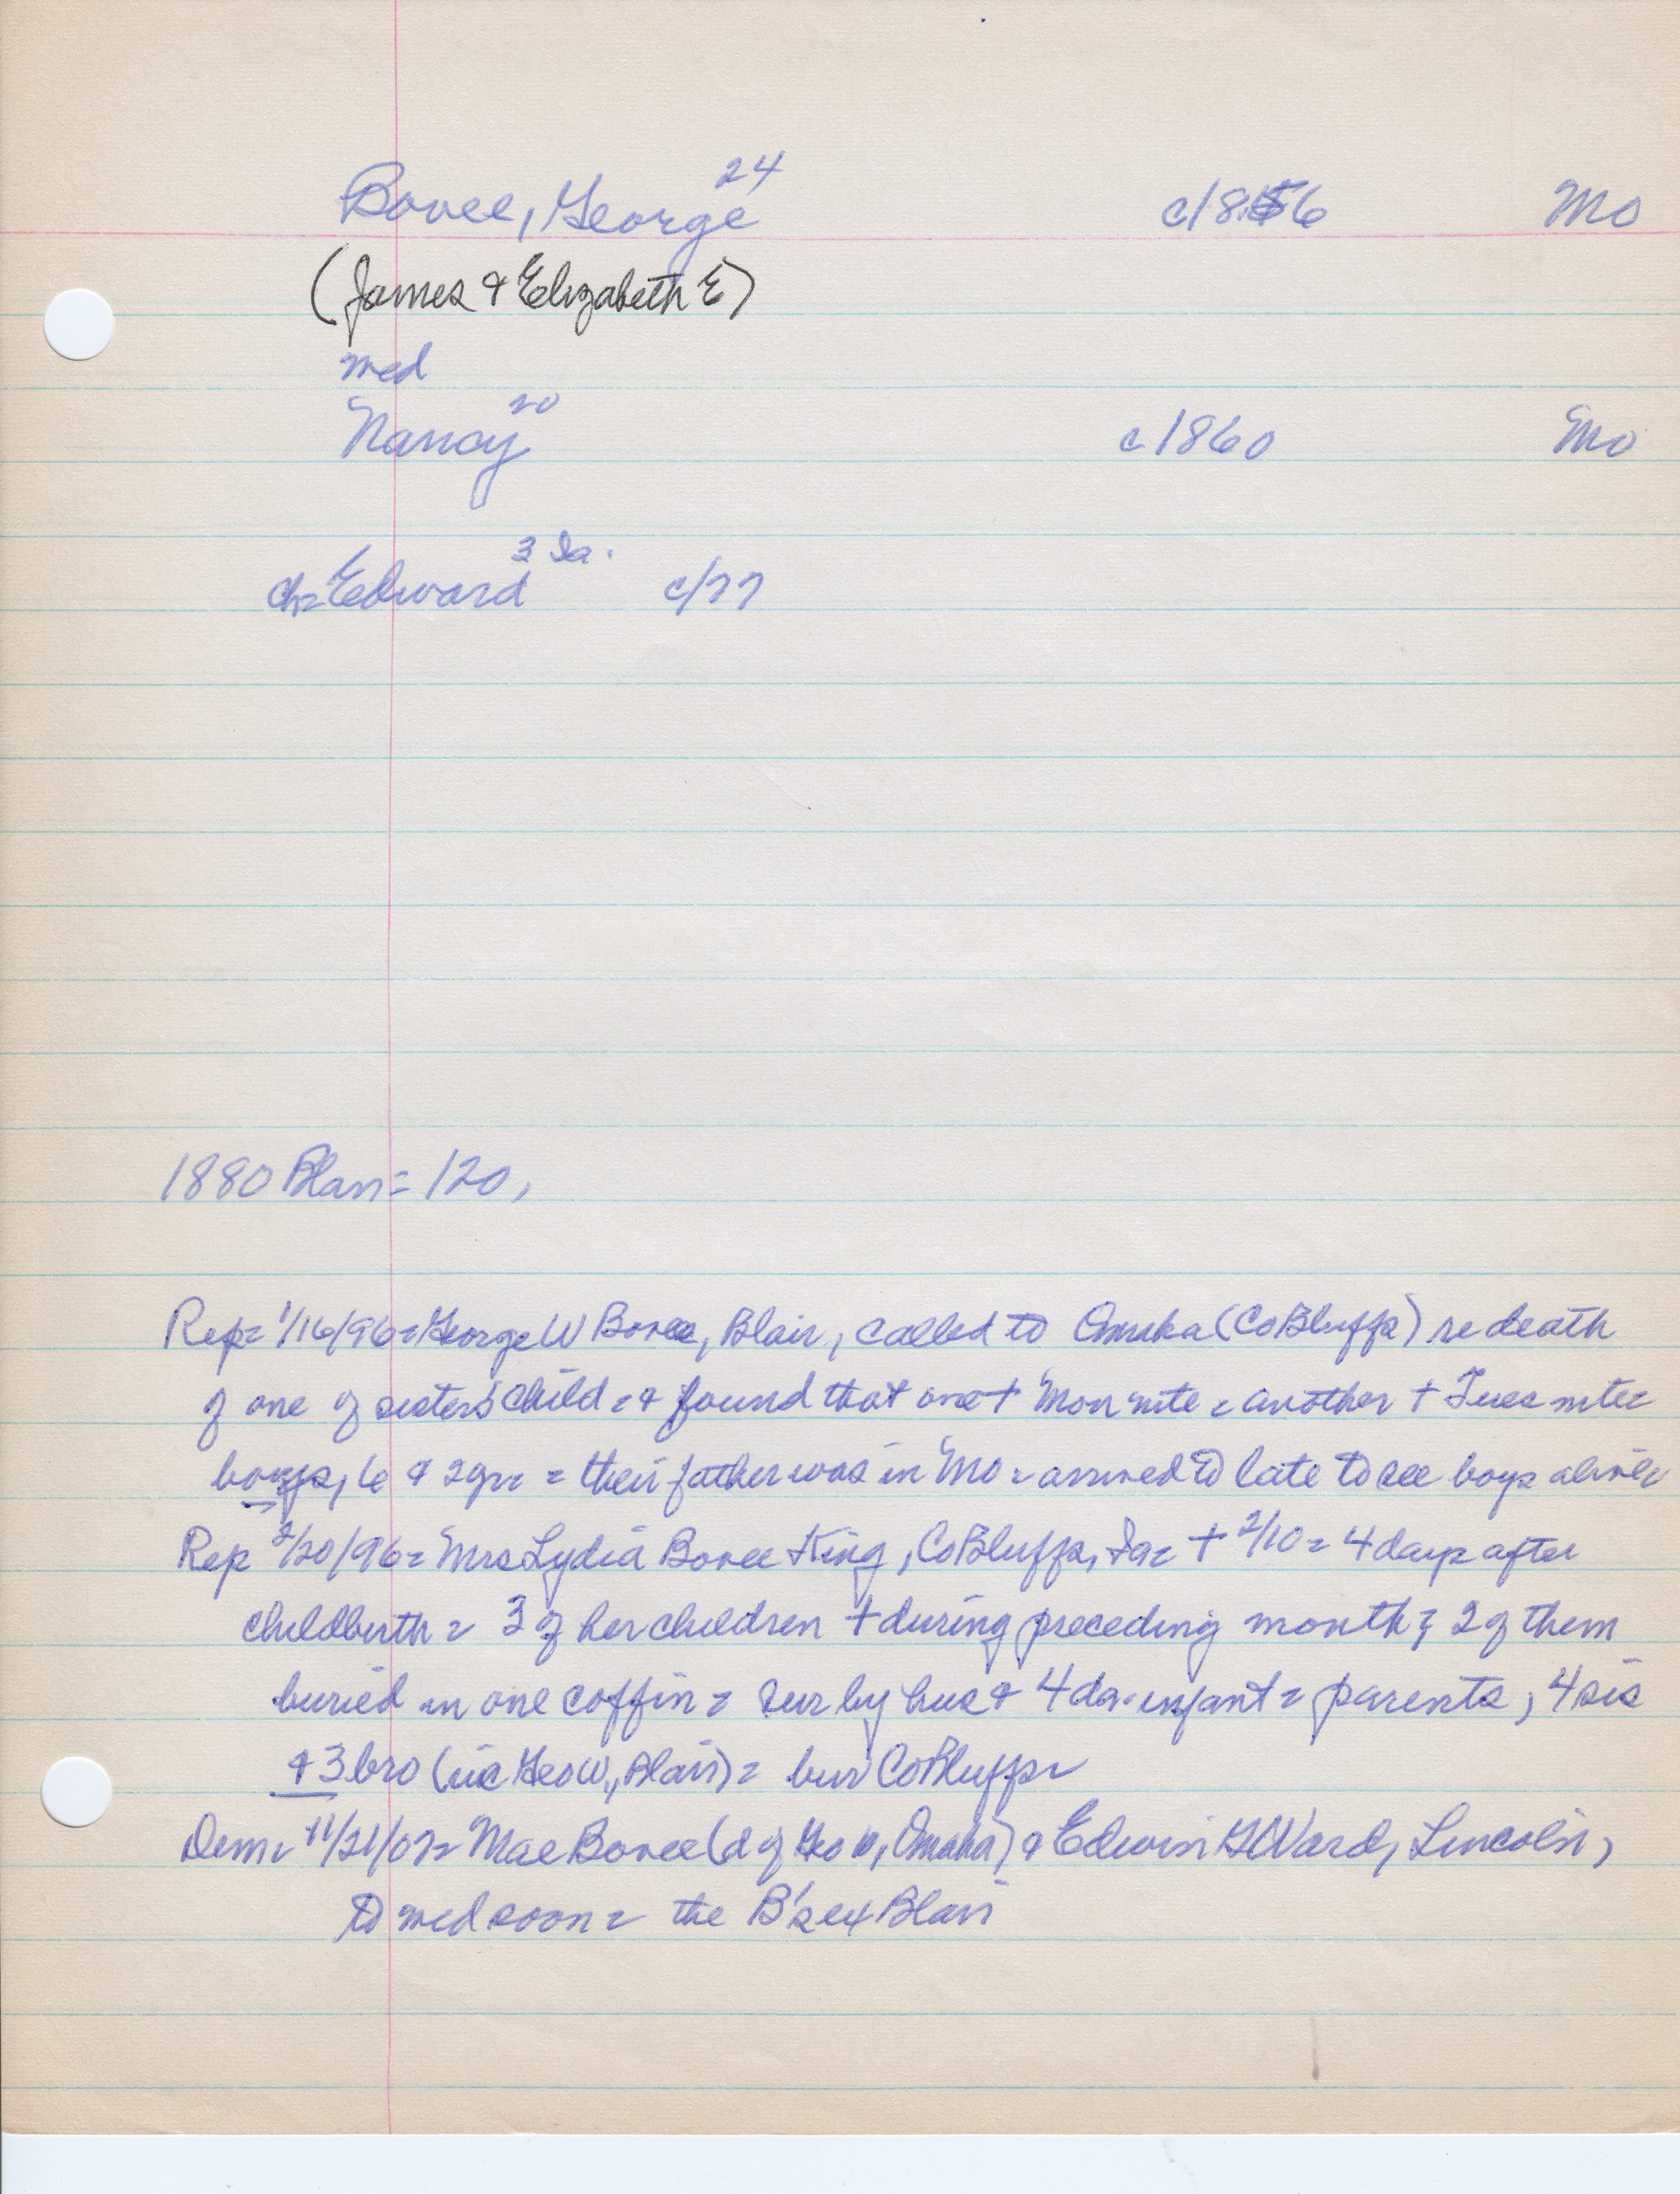 Bovee, George 24 c/1856 Mo
(James & Elizabeth E)
med
Nancy 20 c 1860 Mo
ch= Edward 3 Ia. c/77
1880 Blair = 120,
Rep= 1/16/96= George W Bovee, Blair, called to Omaha (CoBluffs) re death
of one of sister's child = & found that one + Mon nite = another + Tues nite=
boys, 6 & 2yr = = their father was in Mo = arrived to late to see boys alive=
Rep 2/20/96= Mrs Lydia Bovee King, CoBluffs, Ia= + 2/10 = 4 days after
childbirth = 3 of her children + during preceding month; 2 of them
buried in one coffin = sur by hus & 4 da. infant = parents, 4 sis
& 3 bro (inc Geo W., Blair) = bur CoBluffs=
Dem= 11/21/07= Mae Bovee (d of Geo W, Omaha) & Edwin G Ward, Lincoln,
to med soon = the B's ex Blair